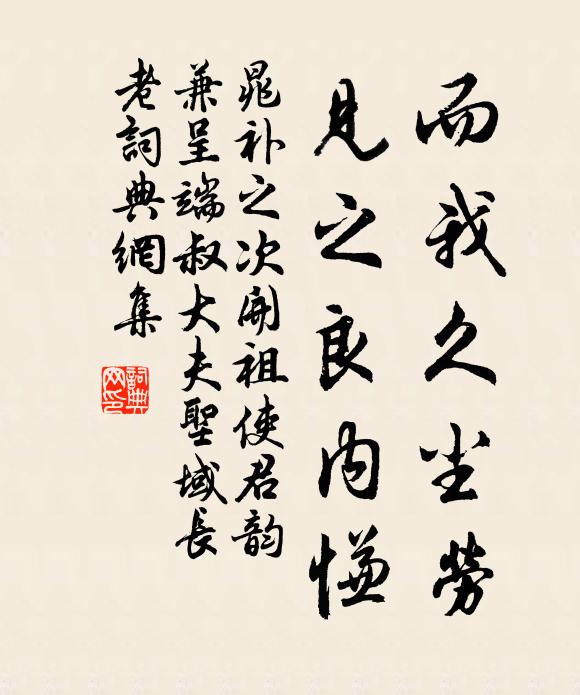 而我久尘勞
見之良内慊
晁补之次開祖使君韵
兼呈端叔大夫聖域長
老詞典網集
詞典网印